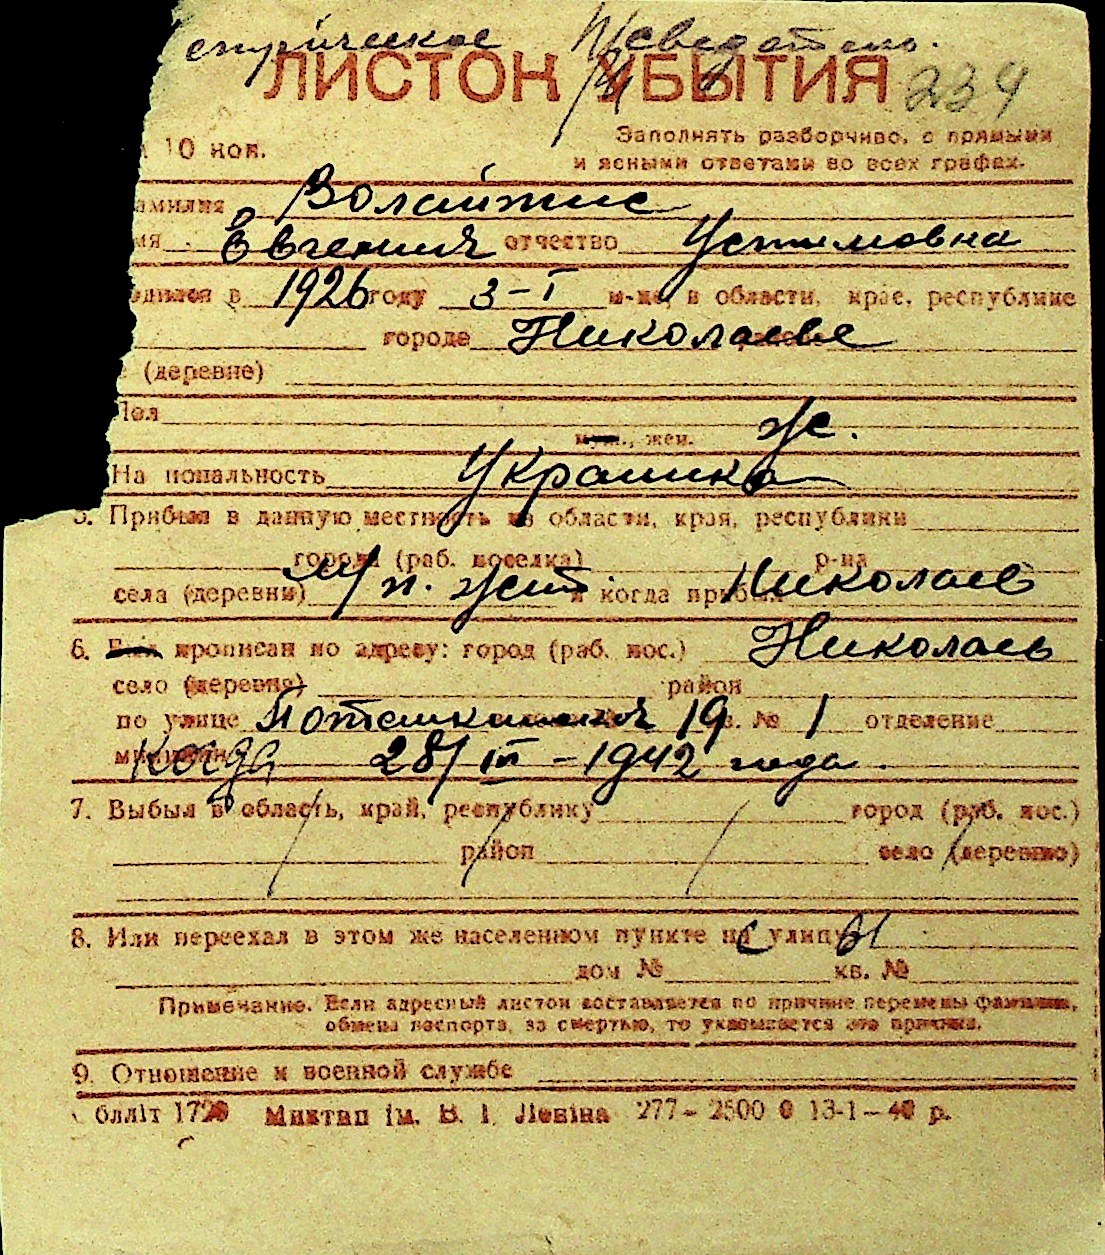 ЛИСТОК УБЫТИЯ 234
10 коп.
Заполнять разборчиво, с прямыми
и ясными ответами во всех графах.
амилия Волайтис
мя Евгения отчество Устимовна
одился в 1926 году 3-I м-це, в области, крае, республике
городе Николаеве
(деревне)
Пол
муж., жен. ж.
На иональность Украинка
5. Прибыл в данную местность из области, края, республики
города (раб. поселка) р-на
села (деревни) М/п. жит. и когда прибыл Николаев
6. Был прописан по адресу: город (раб. пос.) Николаев
село (деревня) район
по улице 19 кв. № 1 отделение
милиции Когда 28/III – 1942 года.
7. Выбыл в область, край, республику город (раб. пос.)
район село (деревню)
8. Или переехал в этом же населенном пункте на улицу
дом № кв. №
Примечание. Если адресный листок составляется по причине перемены фамилии,
обмена паспорта, за смертью, то указывается эта причина.
9. Отношение к военной службе
блліт 1720 Миктип ім. В. І. Леніна 277 – 2500 0 13-1-40 р.